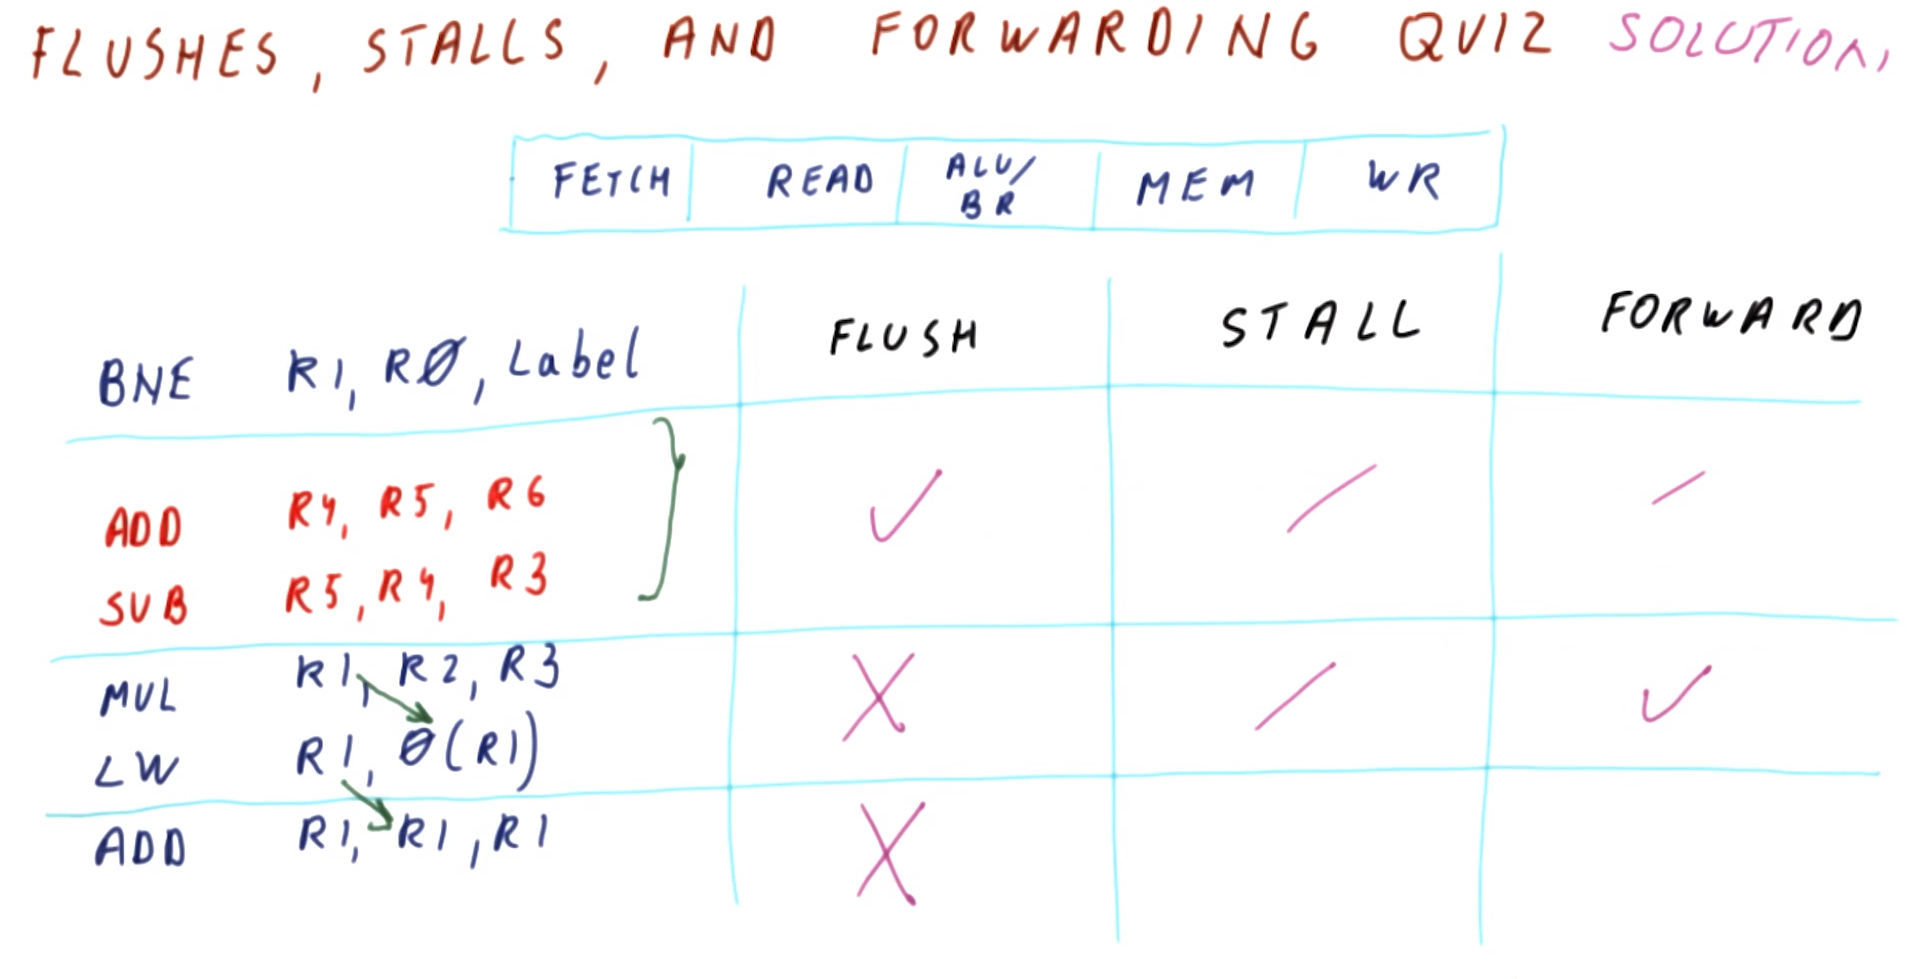 FLUSHES, STALLS, AND FORWARDING QUIZ SOLUTION
FETCH READ ALU/BR MEM WR
FLUSH STALL FORWARD
BNE R1, RØ, Label
ADD R4, R5, R6
SUB R5, R4, R3
MUL R1, R2, R3
LW R1, Ø(R1)
ADD R1, R1, R1